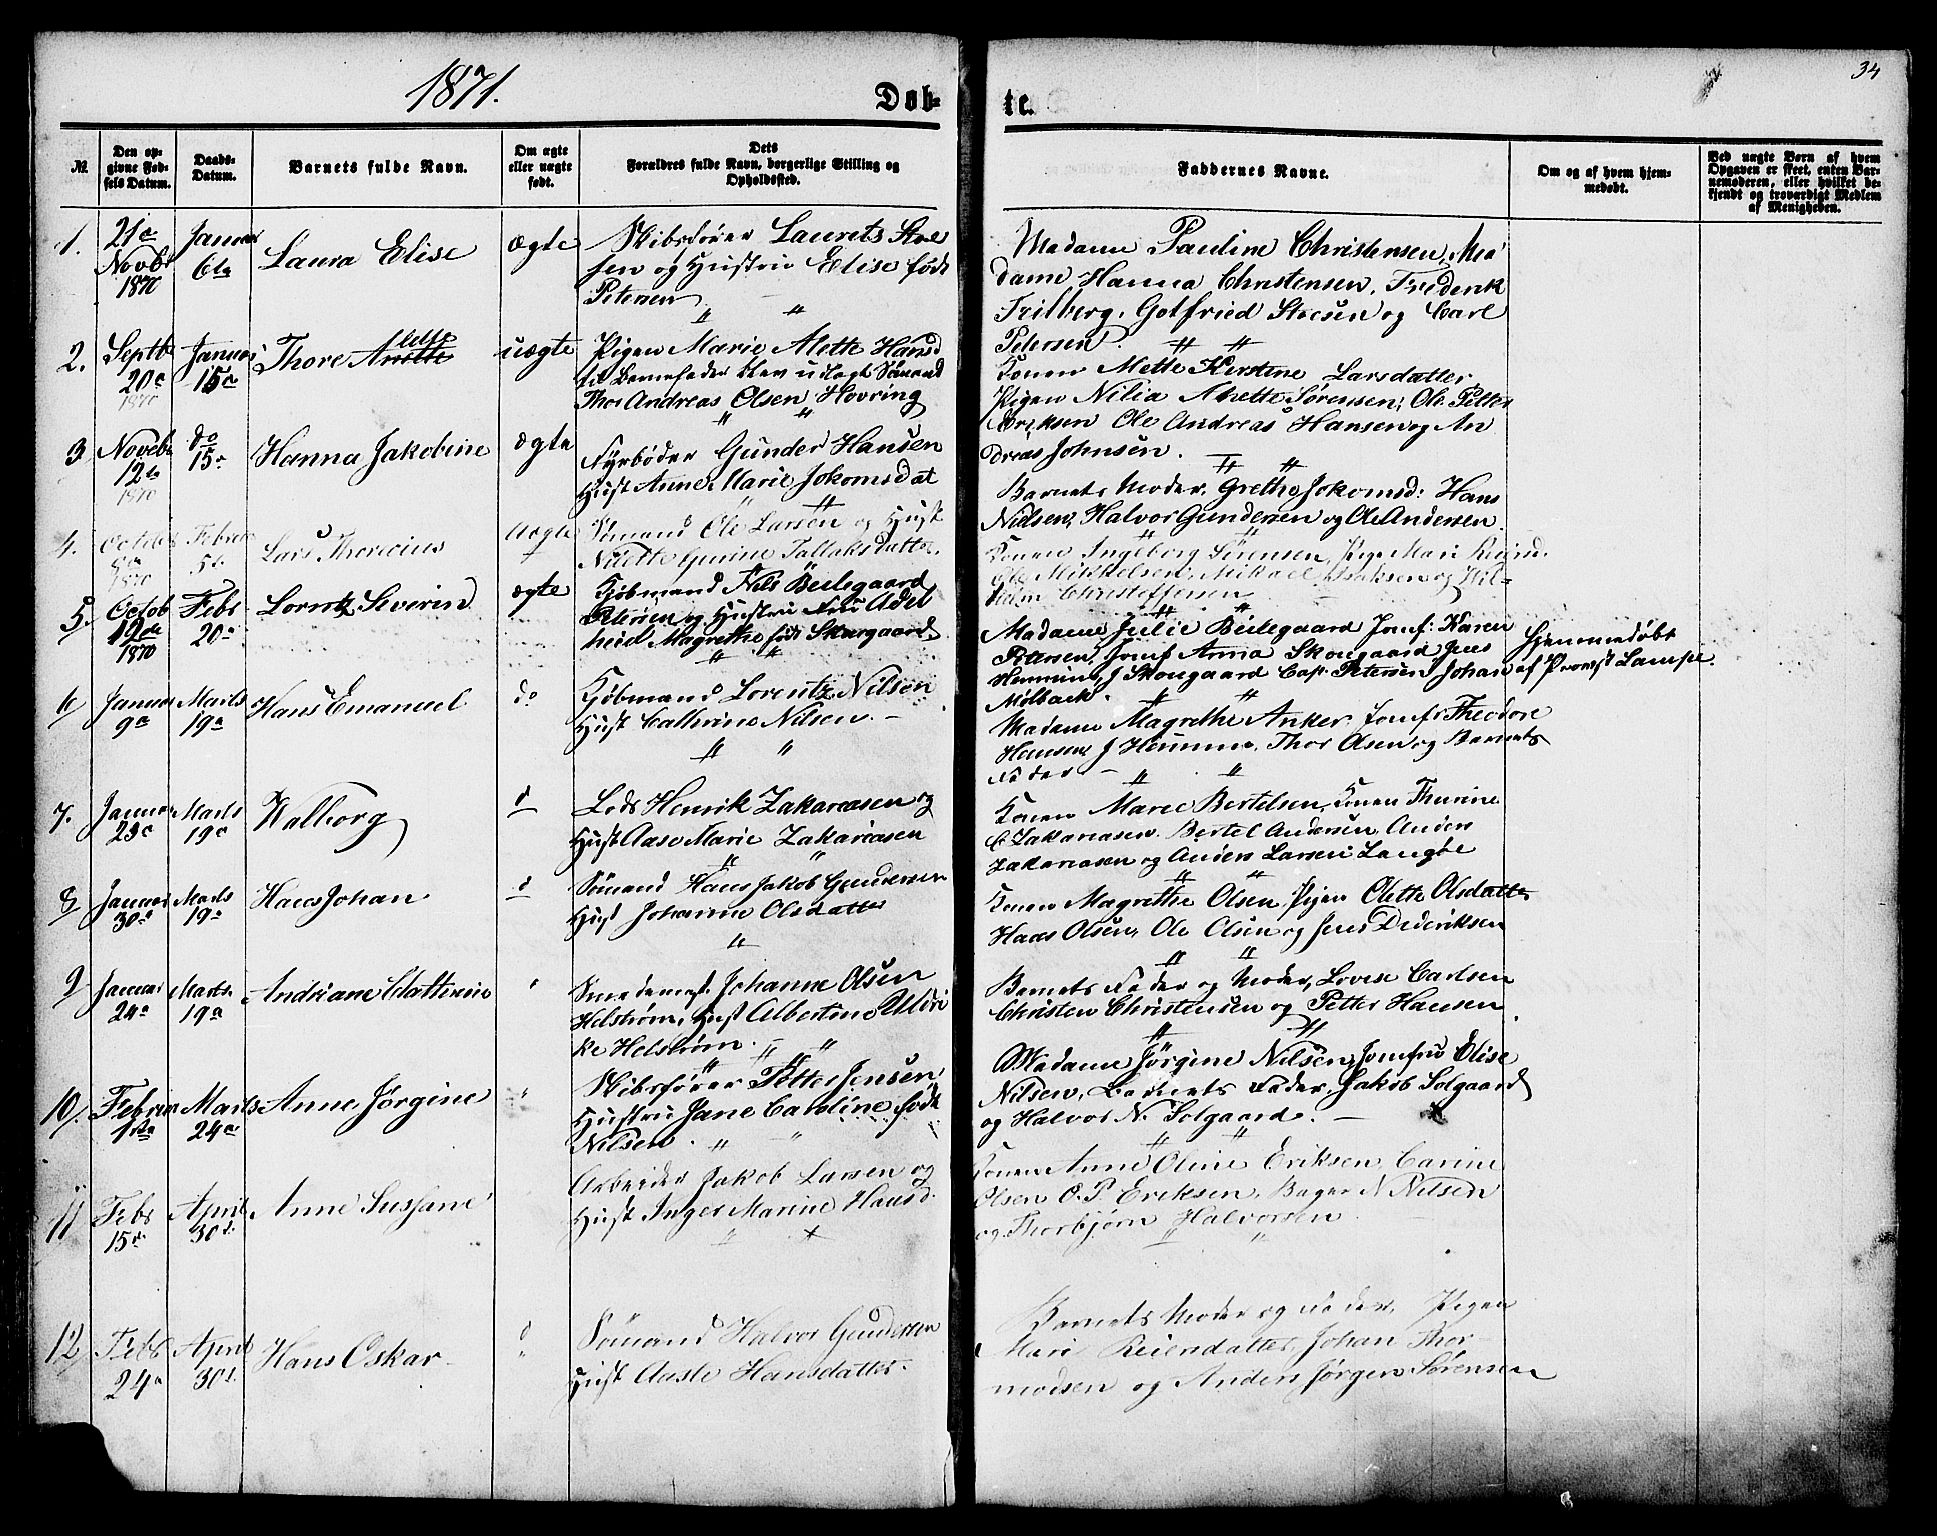 1871.
Døb-
te.
34
№
Den op-
givne Fød-
sels Datum.
Daabs-
Datum.
Barnets fulde Navn.
Om ægte
eller uægte
født.
Dets
Forældres fulde Navn, borgerlige Stilling og
Opholdssted.
Faddernes Navne.
Om og af hvem hjem-
medøbt.
Ved uægte Børn af hvem
Opgaven er skeet, enten Bar-
nemoderen, eller hvilket be-
kjendt og troværdigt Medlem
af Menigheden.
1.
21de
Novbr
1870
Januar
6te
Laura Elise
Ægte
Skibsfører Laurets Stoe
sen og Hustru Elise født
Petersen
Madame Pauline Christensen, Ma
dame Hanna Christensen, Frederik
Frilberg, Gotfried Stoesen og Carl
Petersen.
2.
Septbr
20de
1870
Januar
15de
Thore Anette
uægte
Pigen Marie Alette Hansd
til Barnefader blev udlagt Sømand
Thor Andreas Olsen Hovring
Konen Mette Kirstine Larsdatter,
Pigen Nilia Anette Sørensen, Ole Petter
Eriksen Ole Andreas Hansen og An
dreas Johnsen.
3
Novebr
12te
1870
do
15de
Hanna Jakobine
Ægte
Fyrbøder Gunder Hansen
Hust Anne Marie Jokomsdat
Barnets Moder, Grethe Jokomsd: Hans
Nielsen, Halvor Gundersen og Ole Andersen
4.
Octobr
1870
Februar
5te
Lars Thoricius
Uægte
Sømand Ole Larsen og Hust
Nilette Gurine Tallaksdatter,
Konen Ingeborg Sørensen, Pige Mari Reiersd.
Ole Mikkelsen, Mikael Isaksen og Wil-
helm Christoffersen
5.
Octob
12de
1870
Febr
20de
Lorntz Severin
ægte
Kjøbmand Nils Beilegaard
Petersen og Hustru Fru Adel
heid Magrethe født Skougaard
Madame Julie Beilegaard Jomf: Karen
Petersen, Jomf Anna Skougaard Jens
Henning, J Skougaard Capt Petersen Johan
Mølback.
Hjemmedøbt
af Provst Lampe.
6
Januar
9de
Marts
19de
Hans Emanuel
do
Kjøbmand Lorentz Nilsen
Hust Cathrine Nilsen. –
Madame Magrethe Anker, Jomfr Theodore
Hansen, J Henning, Thor Olsen og Barnets
Fader –
7.
Januar
23de
Marts
19de
Walborg
d
Lods Henrik Zakariasen og
Hust Aase Marie Zakariasen
Konen Maree Bertelsen, Konen Thurine
C. Zakariasen. Bertel Andersen, Anders
Zakariasen og Anders Larsen Langøe
8
Januar
30te
Marts
19de
Hans Johan
d
Sømand Hans Jakob Gundersen
Hust Johanne Olsdatter
Konen Magrethe Olsen, Pigen Olette Olsdatter
Hans Olsen, Ole Olsen og Jens Dideriksen
9
Januar
24de
Marts
19de
Andriane Cathrine
Smedemest. Johanne Olsen
Helstrøm, Hust Albertine Ulri
ke Helstrøm.
Barnets Fader og Moder, Lovise Carlsen
Christen Christensen og Petter Hansen
10.
Februar
1ste
Marts
24de
Anne Jørgine
Skibsfører Petter Jensen
Hustru Jane Caroline født
Nilsen.
Madame Jørgine Nilsen, Jomfru Elise
Nilsen, Barnets Fader, Jakob Solgaard
og Halvor N. Solgaard. –
11
Febr
15de
April
30te
Anne Sussane
Arbeider Jakob Larsen og
Hust Inger Marine Hansd.
Konen Anne Oline Eriksen, Carine
Olsen O. P. Eriksen, Bager N Nilsen
og Thorbjørn Halvorsen
12
Febr
24de
April
30te
Hans Oskar
d
Sømand Halvor Gundersen
Hust Aasle Hansdatter
Barnets Moder og Fader, Pigen
Mari Reiersdatter, Johan Thor-
modsen og Anders Jørgen Sørensen